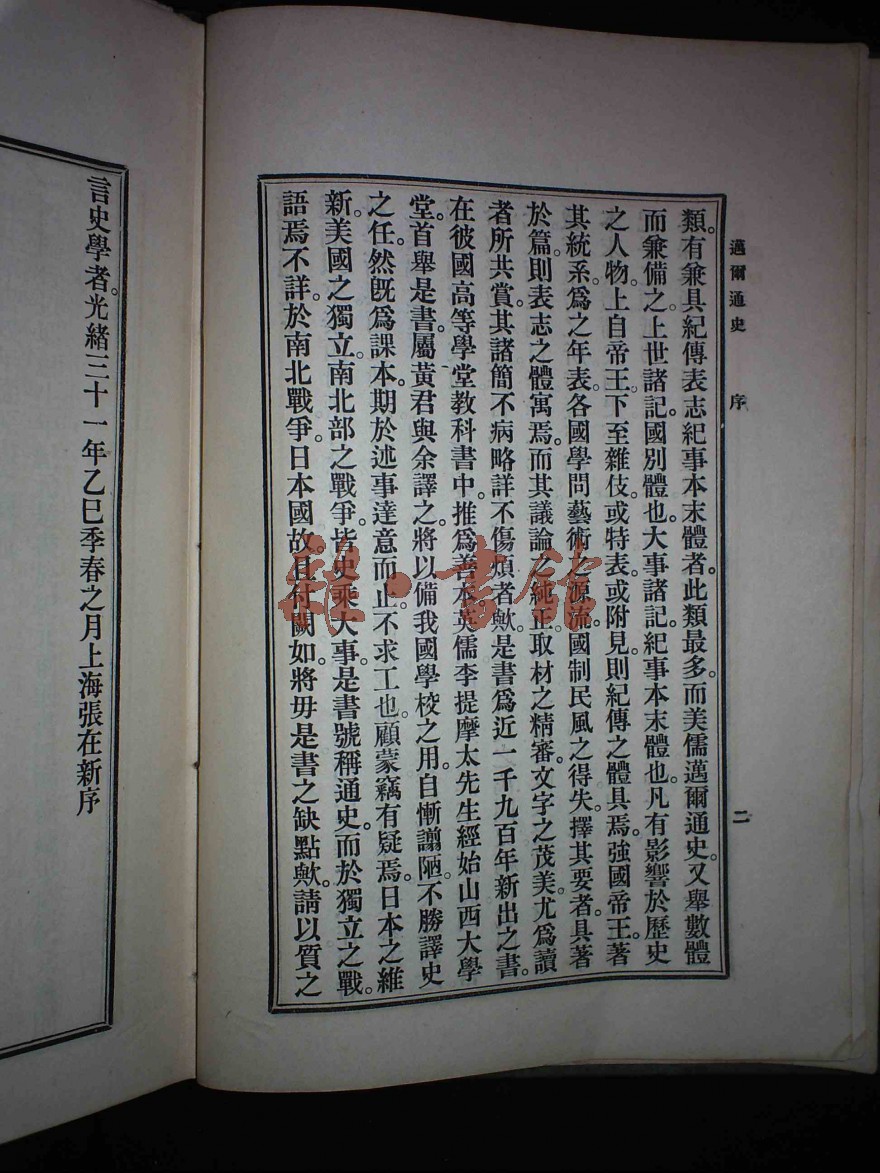 邁爾通史　序　二
類。有兼具紀傳表志紀事本末體者。此類最多。而美儒邁爾通史。又舉數體
而兼備之。上世諸記。國別體也。大事諸記。紀事本末體也。凡有影響於歷史
之人物。上自帝王。下至雜伎。或特表。或附見。則紀傳之體具焉。強國帝王。著
其統系。爲之年表。各國學問藝術之源流。國制民風之得失。擇其要者。具著
於篇。則表志之體寓焉。而其議論之純正。取材之精審。文字之茂美。尤爲讀
者所共賞。其諸簡不病略。詳不傷煩者歟。是書爲近一千九百年新出之書。
在彼國高等學堂教科書中。推爲善本。英儒李提摩太先生經始山西大學
堂。首舉是書。屬黃君與余譯之。將以備我國學校之用。自慚譾陋。不勝譯史
之任。然旣爲課本。期於述事達意而止。不求工也。顧蒙竊有疑焉。日本之維
新。美國之獨立。南北部之戰爭。皆史乘大事。是書號稱通史。而於獨立之戰。
語焉不詳。於南北戰爭。日本國故。且付闕如。將毋是書之缺點歟。請以質之
言史學者。光緒三十一年乙巳季春之月上海張在新序
雜·書館